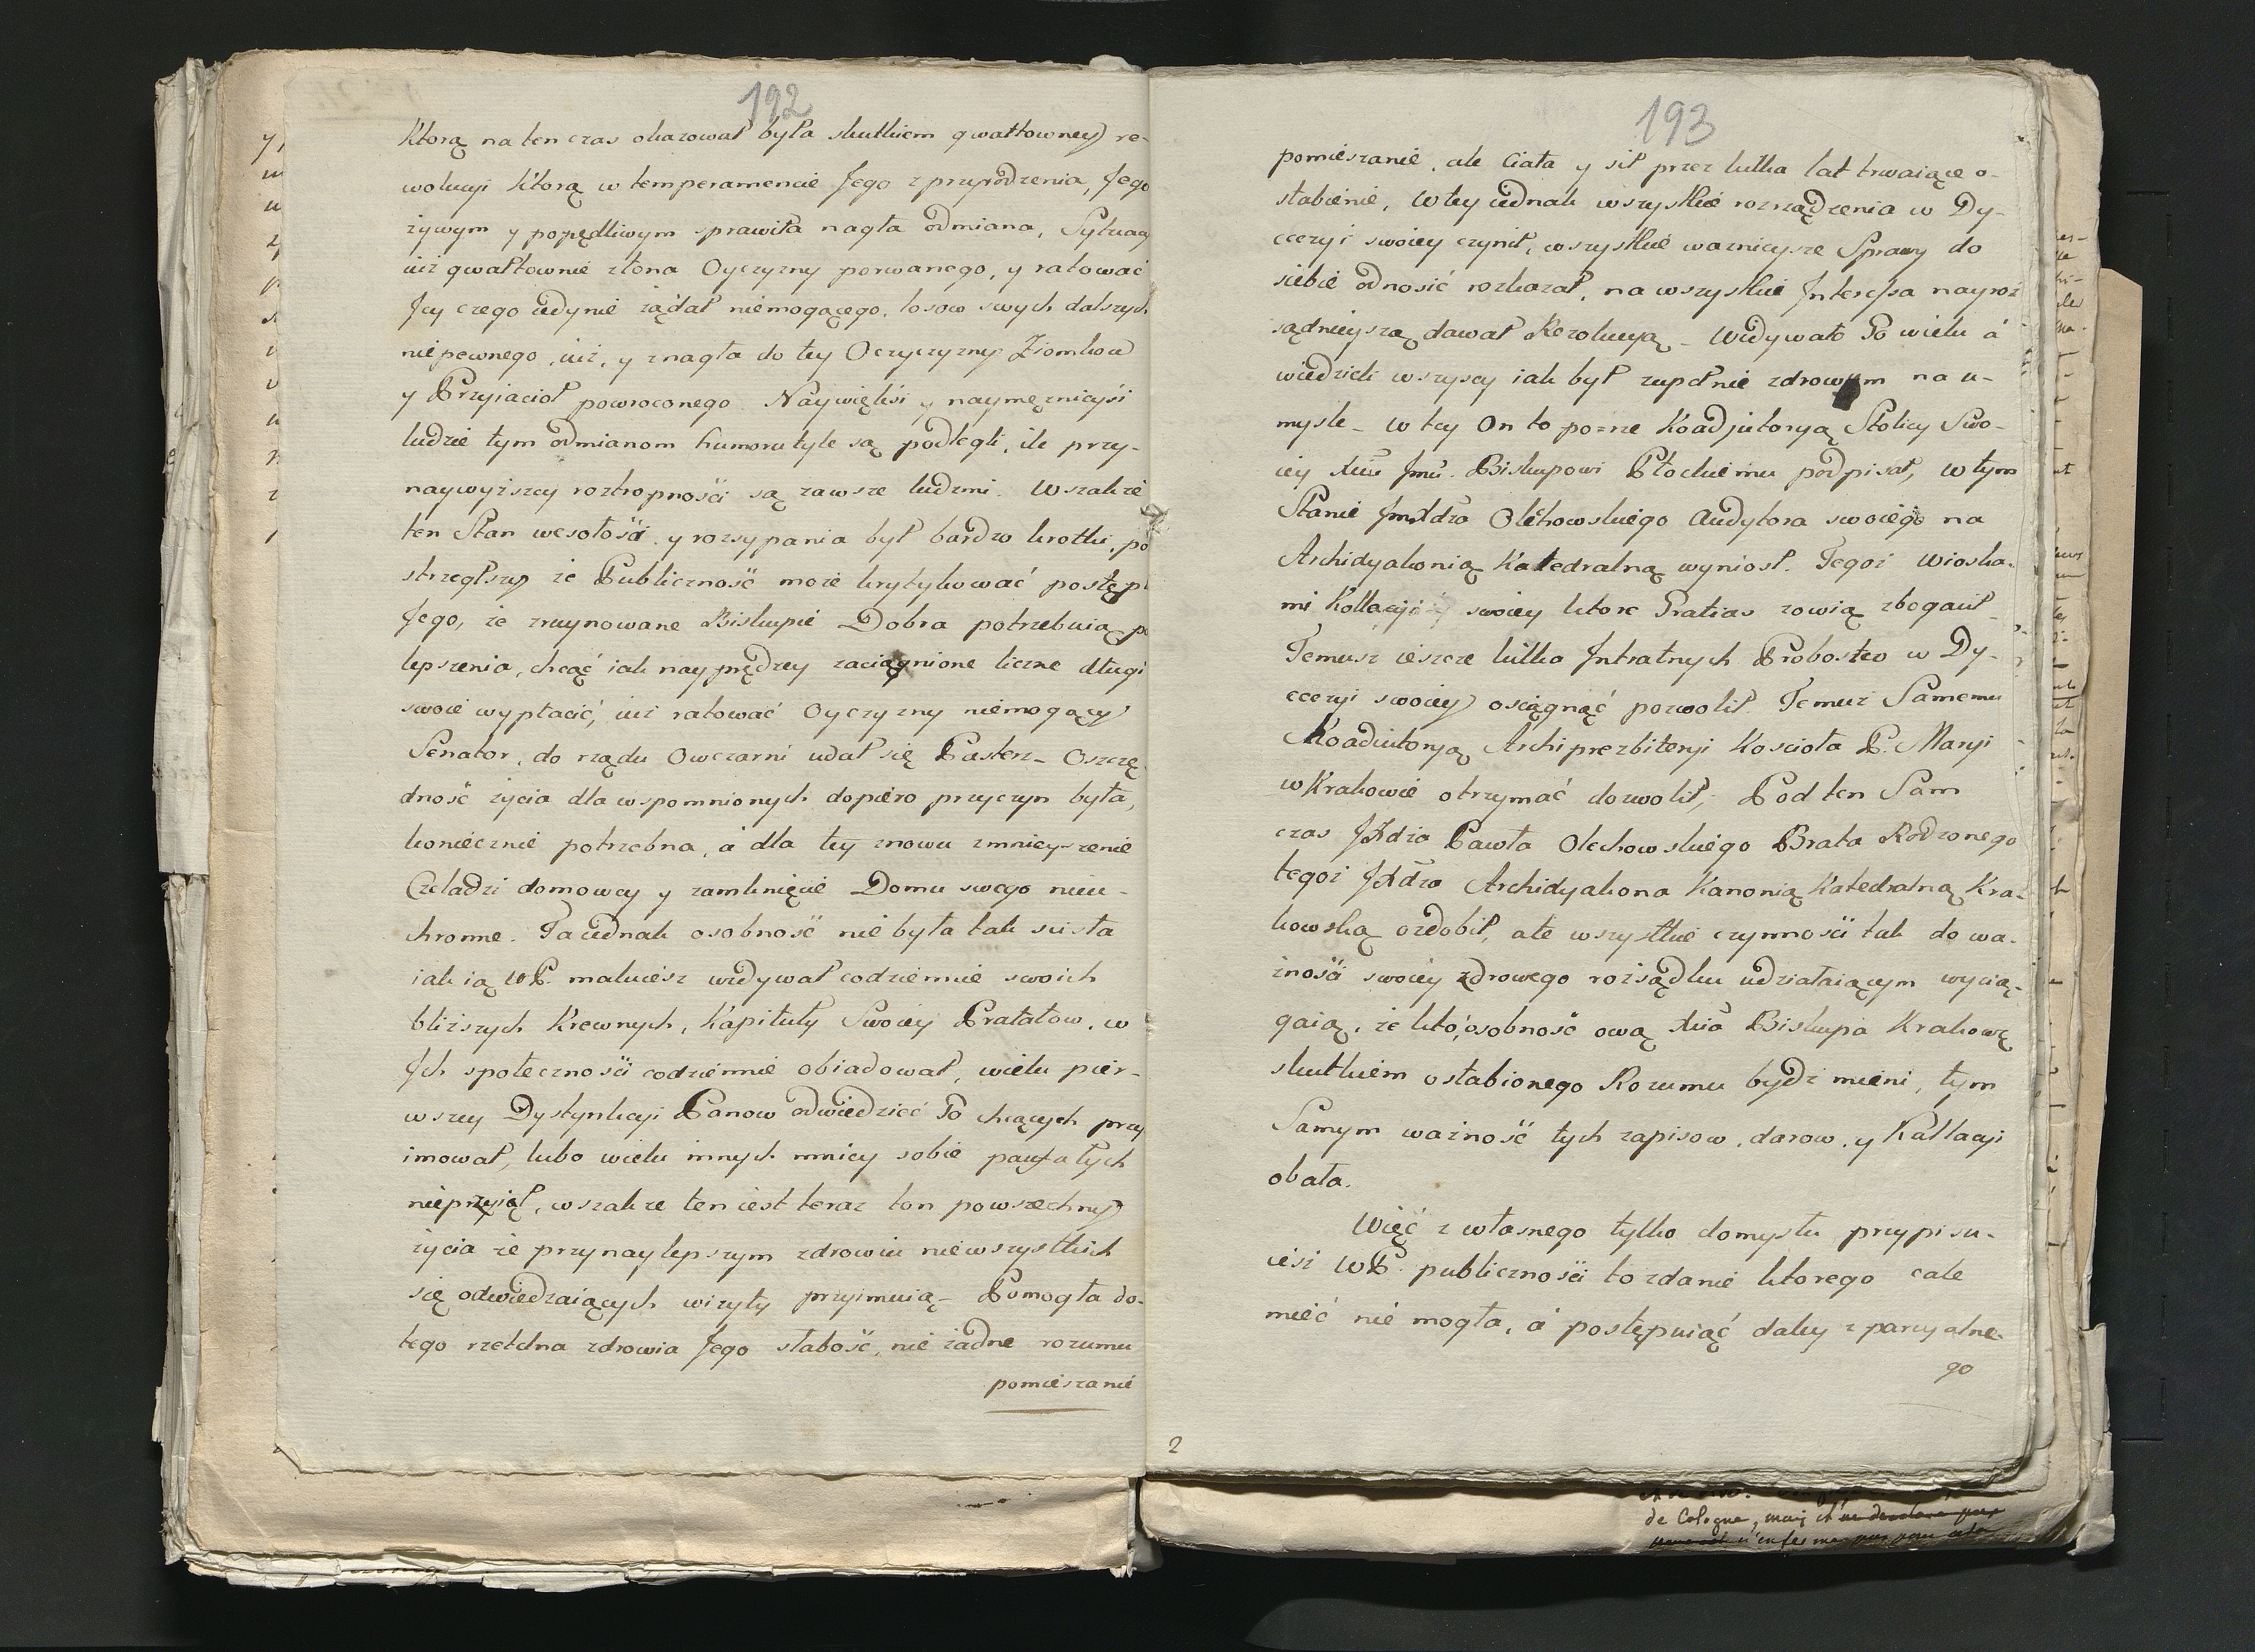 192
Ktorą na ten czas okazował była skutkiem gwałtowney re-
wolucyi ktorą w temperamencie Jego z przyrodzenia, Jego
żywym y popędliwym sprawiła nagła odmiana, Sytuacy
iuż gwałtownie złona Oyczyzny porwanego, y ratować
Jey czego iedynie żądał niemogącego, losow swych dalszych
niepewnego, iuż, y znagła do tey Oczyczyzny Ziomkow
y Przyiacioł powroconego Naywięksi y naymężnieysi
ludzie tym odmianom humoru tyle są podlegli, ile przy-
naywyższey roztropności są zawsze ludzmi. Wszakże
ten Stan wesołości y rozsypania był bardzo krotki, po
strzegłszy że Publiczność może krytykować postęp
Jego, że zruynowane Biskupie Dobra potrzebuią po
lepszenia, chcąć iak nayprędzey zaciągnione liczne długi
swoie wypłacić, iuż ratować Oyczyzny niemogący
Senator, do rządu Owczarni udał się Pasterz- Oszczę-
dność życia dla wspomnionych dopiero przyczyn była,
koniecznie potrzebna, á dla tey znowu zmnieyszenie
Czeladzi domowey y zamknięcie Domu swego nieu-
chronne. Ta iednak osobność nie była tak scisła
iak ią WP. maluiesz widywał codziennie swoich
bliższych Krewnych, Kapituły Swoiey Prałatow, w
Jch społeczności codziennie obiadował, wielu pier-
wszey Dystynkcyi Panow odwiedzieć Go chcących przy
imował, lubo wielu innych mniey sobie poufałych
nieprzyiął, wszakże ten iest teraz ton powszechny
życia że przynaylepszym zdrowiu niewszystkich
się odwiedzaiących wizyty przyimuią- Pomogła do-
tego rzetelna zdrowia Jego słabość, nie żadne rozumu
pomieszanie
193
pomieszanie, ale Ciała y sił przez kilka lat trwaiące o-
słabienie, W tey iednak wszystkie rozrządzenia w Dy-
ecezyi swoiey czynił, wszystkie ważnieysze Sprawy do
siebie odnosić rozkazał, na wszystkie Interessa nayroz
sądnieyszą dawał Rezolucyą- Widywało Go wielu á
wiedzieli wszyscy iak był zupełnie zdrowym na u-
mysle- w tey On to porze Koadjutoryą Stolicy Swo-
iey Xciu Jmci. Biskupowi Płockiemu podpisał, w tym
Stanie JmXdza Olechowskiego Audytora swoiego na
Archidyakonią Katedralną wyniosł. Tegoż Wioska-
mi Kollacyi swoiey ktore Gratias zowią zbogacił
Temusz ieszcze kilka Intratnych Probostw w Dy-
ecezyi swoiey osiągnąć pozwolił. Temuż Samemu
Koadiutoryą Archiprezbiteryi Kościoła P. Maryi
w Krakowie otrzymać dozwolił, Pod ten Sam
czas JXdza Pawła Olechowskiego Brata Rodzonego
tegoż JXdza Archidyakona Kanonią Katedralną Kra-
kowską ozdobił, ale wszystkie czynności tak do wa-
żności swoiey zdrowego rozsądku udziałaiącym wycią-
gaią, że kto, osobność ową Xcia Biskupa Krakows
skutkiem osłabionego Rozumu bydź mieni, tym
Samym ważność tych zapisow, darow, y Kallacyi
obala.
Więć z własnego tylko domysłu przypisu-
iesz WP. publiczności to zdanie ktorego cale
mieć nie mogła, á postępuiąć daley z parcyalne-
go
2
de Cologne, mais